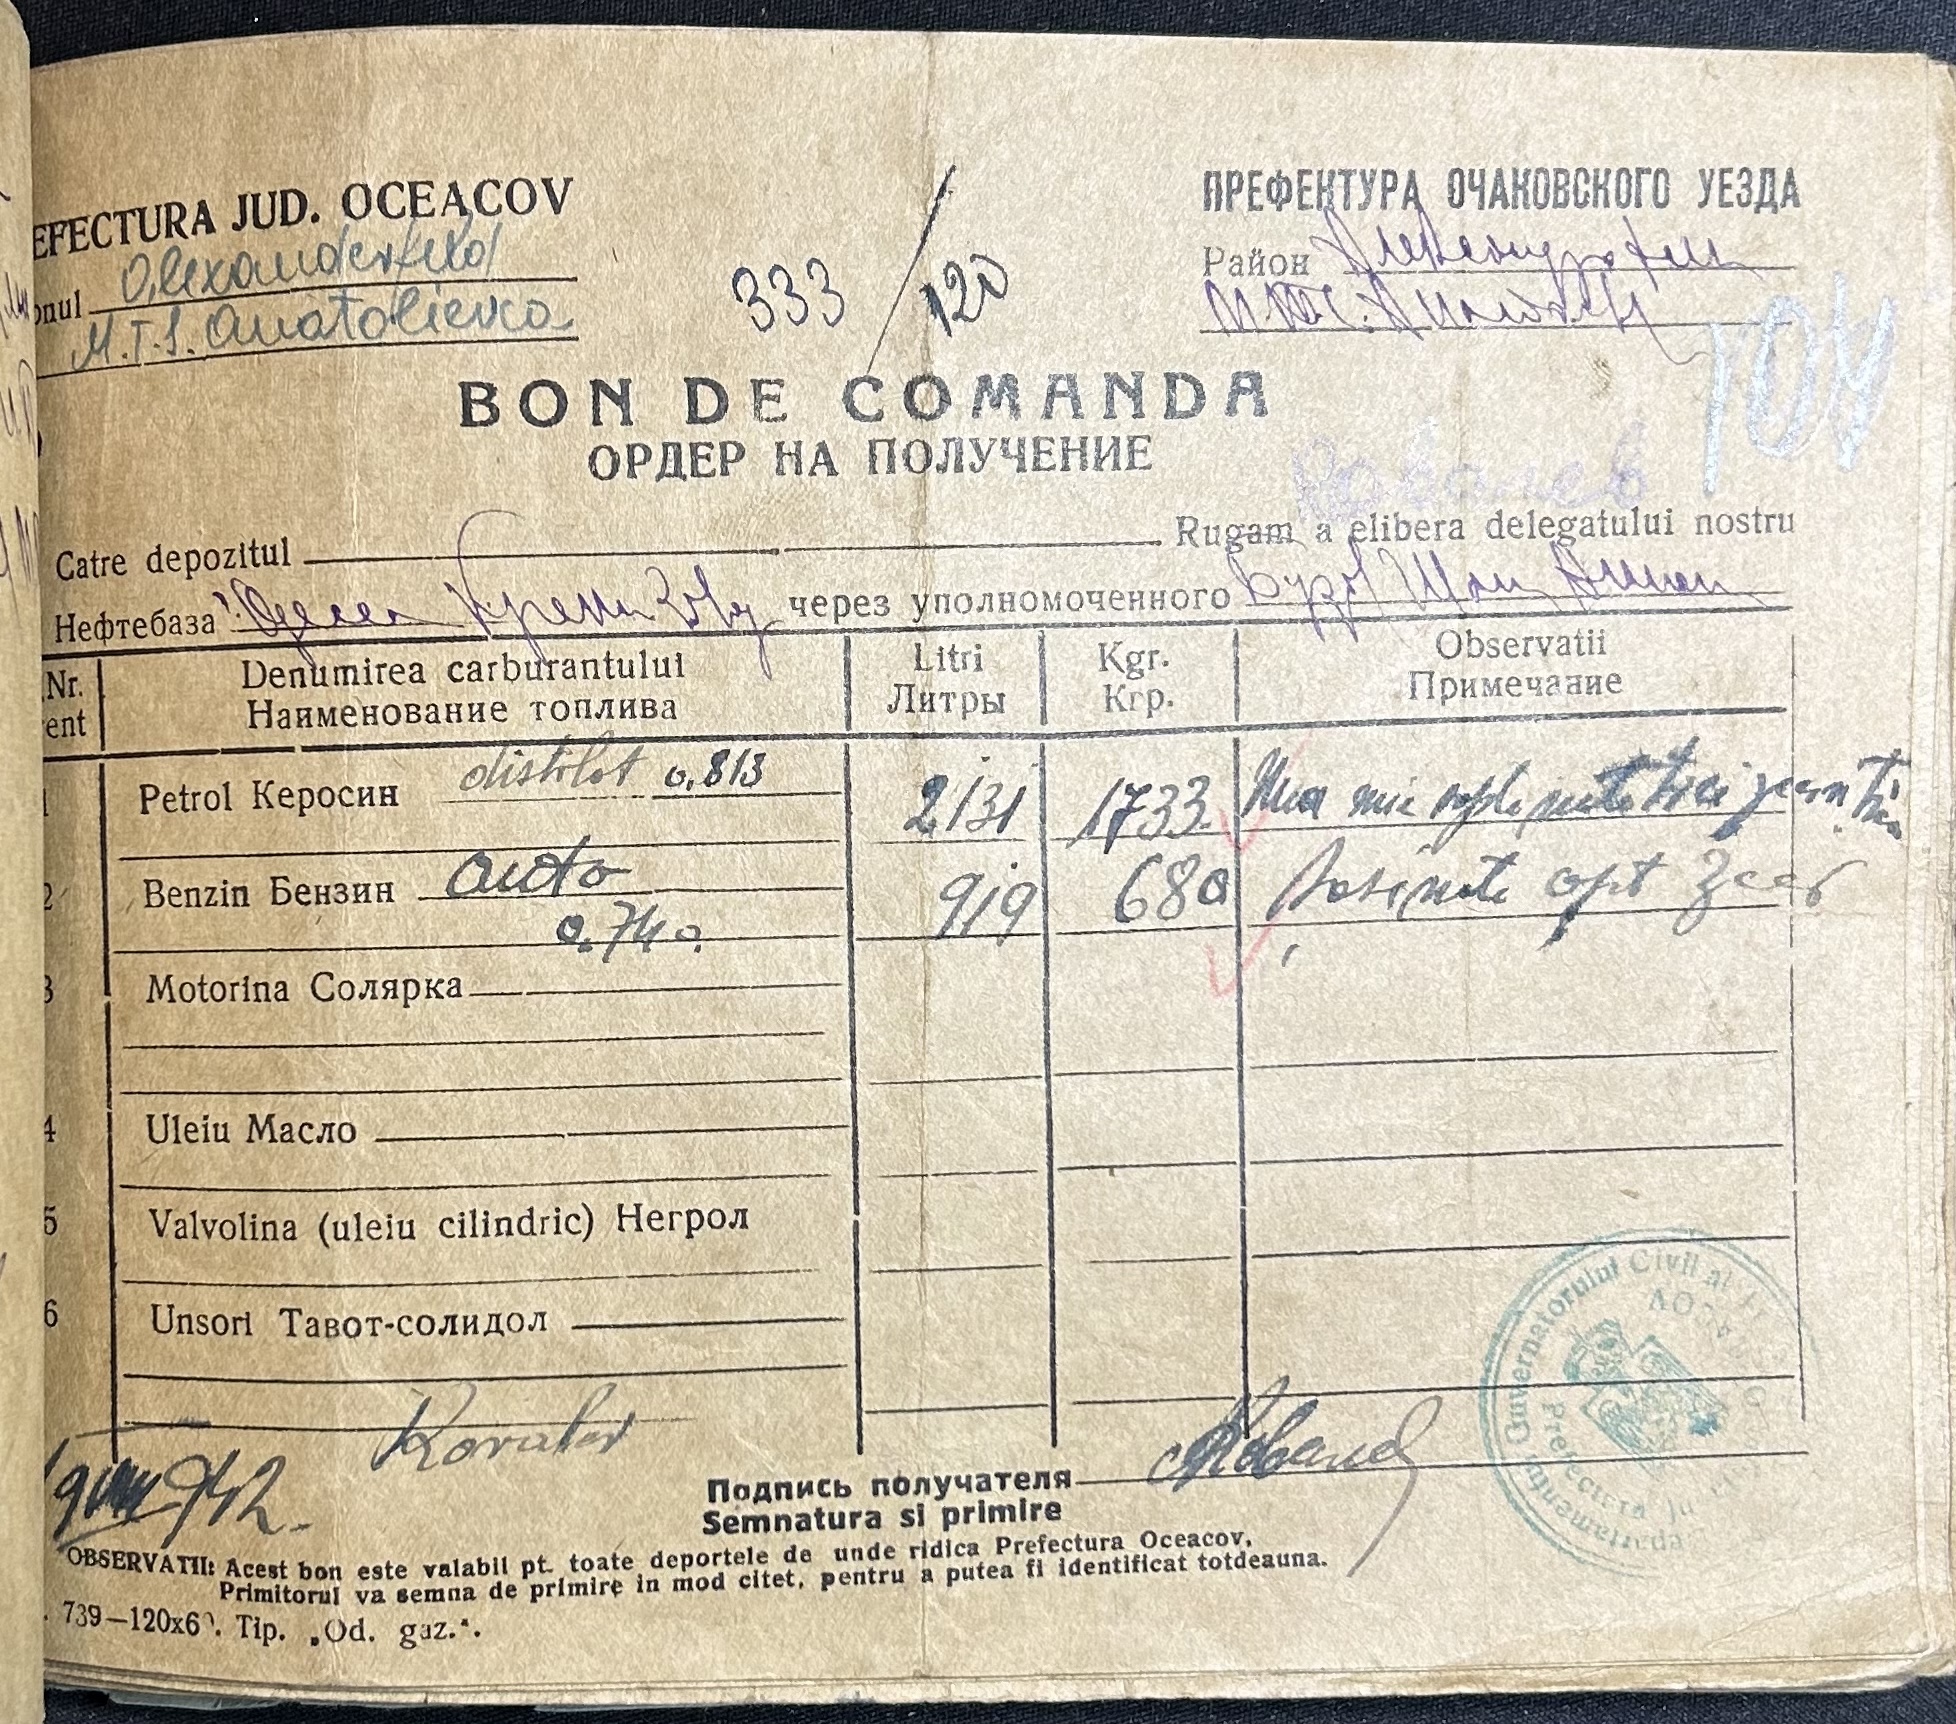 EFECTURA JUD. OCEACOV
onul Alexanderfeld
M.T.S. Anatolievca
333/120
ПРЕФЕКТУРА ОЧАКОВСКОГО УЕЗДА
Район
BON DE COMANDA
ОРДЕР НА ПОЛУЧЕНИЕ
Catre depozitul Rugam a elibera delegatului nostru
Нефтебаза Одесса через уполномоченного
Nr. Denumirea carburantului Litri Kgr. Observatii
ent Наименование топлива Литры Кгр. Примечание
1 Petrol Керосин distilat 0.813 2131 1733 Una mie sapte sute trei zeci si trei
2 Benzin Бензин auto 919 680 Sase sute opt zeci
0.740
3 Motorina Солярка
4 Uleiu Масло
5 Valvolina (uleiu cilindric) Негрол
6 Unsori Тавот-солидол
942 Kovalev
Подпись получателя
Semnatura si primire
OBSERVATII: Acest bon este valabil pt. toate deportele de unde ridica Prefectura Oceacov,
Primitorul va semna de primire in mod citet, pentru a putea fi identificat totdeauna.
739—120x6 . Tip. „Od. gaz.“.
Guvernatorului Civil al
Prefectura Ju